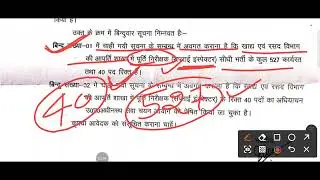 किया है।
उक्त के क्रम में बिन्दुवार सूचना निम्नवत है:-
बिन्दु संख्या-01 में चाही गयी सूचना के सम्बन्ध में अवगत कराना है कि खाद्य एवं रसद विभाग
की आपूर्ति शाखा में पूर्ति निरीक्षक इंस्पेक्टर) सीधी भर्ती के कुल 527 कार्यरत
तथा 40 पद रिक्त है।
बिन्दु संख्या-02 में चाही गयी सूचना के सम्बन्ध में अवगत कराना है कि खाद्य एवं रसद विभाग
की आपूर्ति शाखा में पूर्ति निरीक्षक (सप्लाई इंस्पेक्टर) के रिक्त 40 पदों का अधियाचन
चयन आयोग को प्रेषित किया जा चुका है।
आवेदक को सूचित कराना चाहें।
40